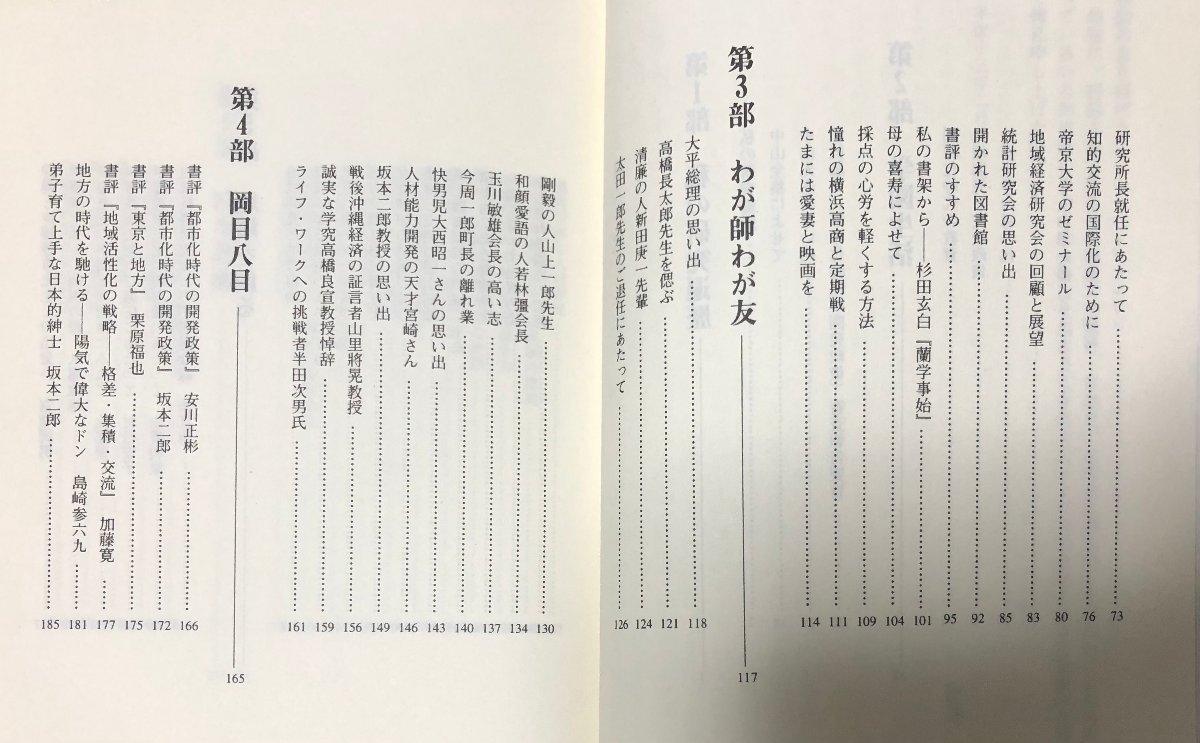 研究所長就任にあたって……73
知的交流の国際化のために……76
帝京大学のゼミナール……80
地域経済研究会の回顧と展望……83
統計研究会の思い出……85
開かれた図書館……92
書評のすすめ……95
私の書架から――杉田玄白『蘭学事始』……101
母の喜寿によせて……104
採点の心労を軽くする方法……109
憧れの横浜高商と定期戦……111
たまには愛妻と映画を……114
第3部 わが師わが友 117
大平総理の思い出……118
高橋長太郎先生を偲ぶ……121
清廉の人新田庚一先輩……124
太田一郎先生のご退任にあたって……126
剛毅の人山上一郎先生……130
和顔愛語の人若林彊会長……134
玉川敏雄会長の高い志……137
今周一郎町長の離れ業……140
快男児大西昭一さんの思い出……143
人材能力開発の天才宮崎さん……146
坂本二郎教授の思い出……149
戦後沖縄経済の証言者山里將晃教授……156
誠実な学究高橋良宣教授悼辞……159
ライフ・ワークへの挑戦者半田次男氏……161
第4部 岡目八目 165
書評『都市化時代の開発政策』 安川正彬……166
書評『都市化時代の開発政策』 坂本二郎……172
書評『東京と地方』 栗原福也……175
書評『地域活性化の戦略――格差・集積・交流』 加藤寛……177
地方の時代を馳ける――陽気で偉大なドン 島崎参六九……181
弟子育て上手な日本的紳士 坂本二郎……185